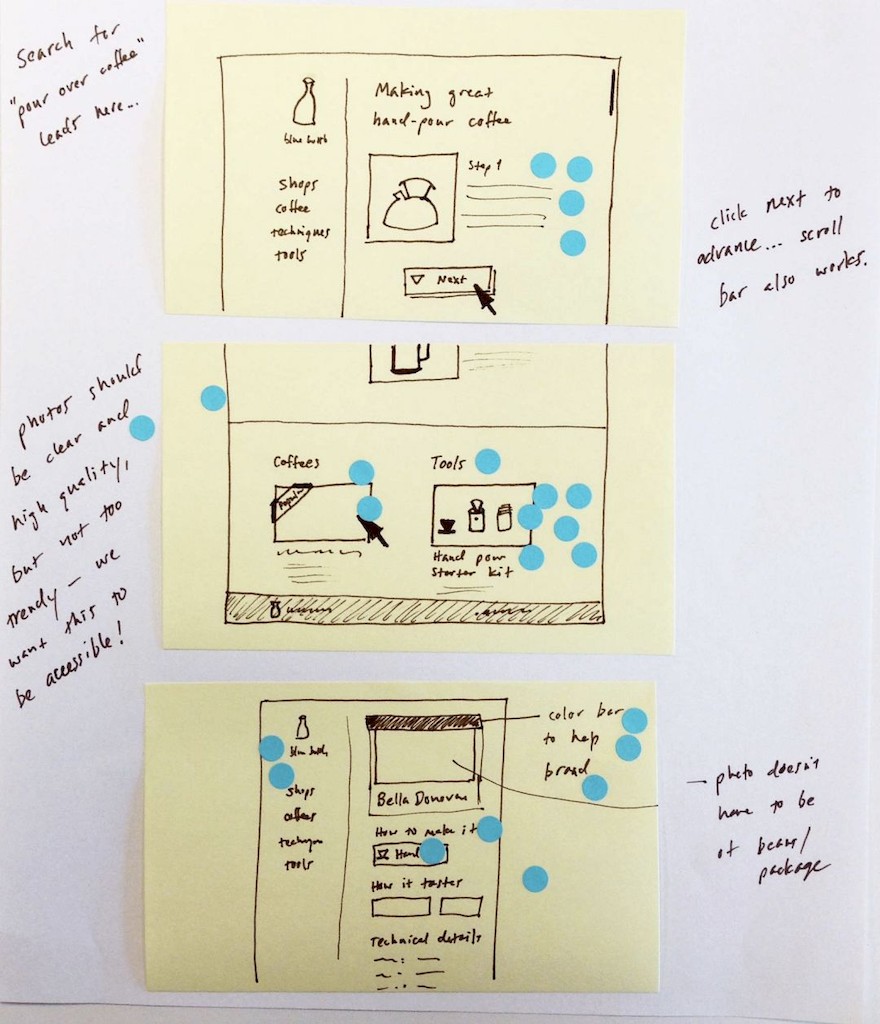 Search for
"pour over coffee"
leads here...
Making great
hand-pour coffee
Step 1
shops
coffee
techniques
tools
Next
click next to
advance... scroll
bar also works.
photos should
be clear and
high quality,
but not too
trendy – we
want this to
be accessible!
Coffees
Popular
Tools
Hand pour
Starter kit
shops
coffees
tools
Bella Donovan
How to make it
Hand
How it tastes
Technical details
color bar
to help
brand
– photo doesn't
have to be
of beans/
package